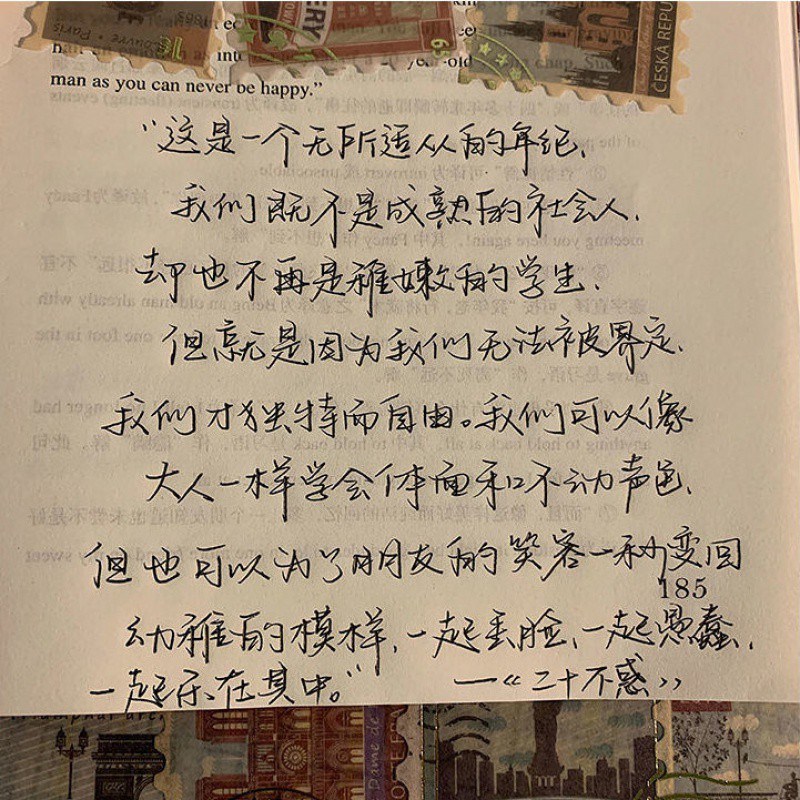 man as you can never be happy."
“这是一个无所适从的年纪,
我们既不是成熟的社会人,
却也不再是稚嫩的学生,
但就是因为我们无法被界定,
我们才独特而自由。我们可以像
大人一样学会体面和不动声色,
但也可以为了朋友的笑容一秒变回
185
幼稚的模样,一起丢脸,一起愚蠢,
一起乐在其中。”
—《二十不惑》
ČESKÁ REPU